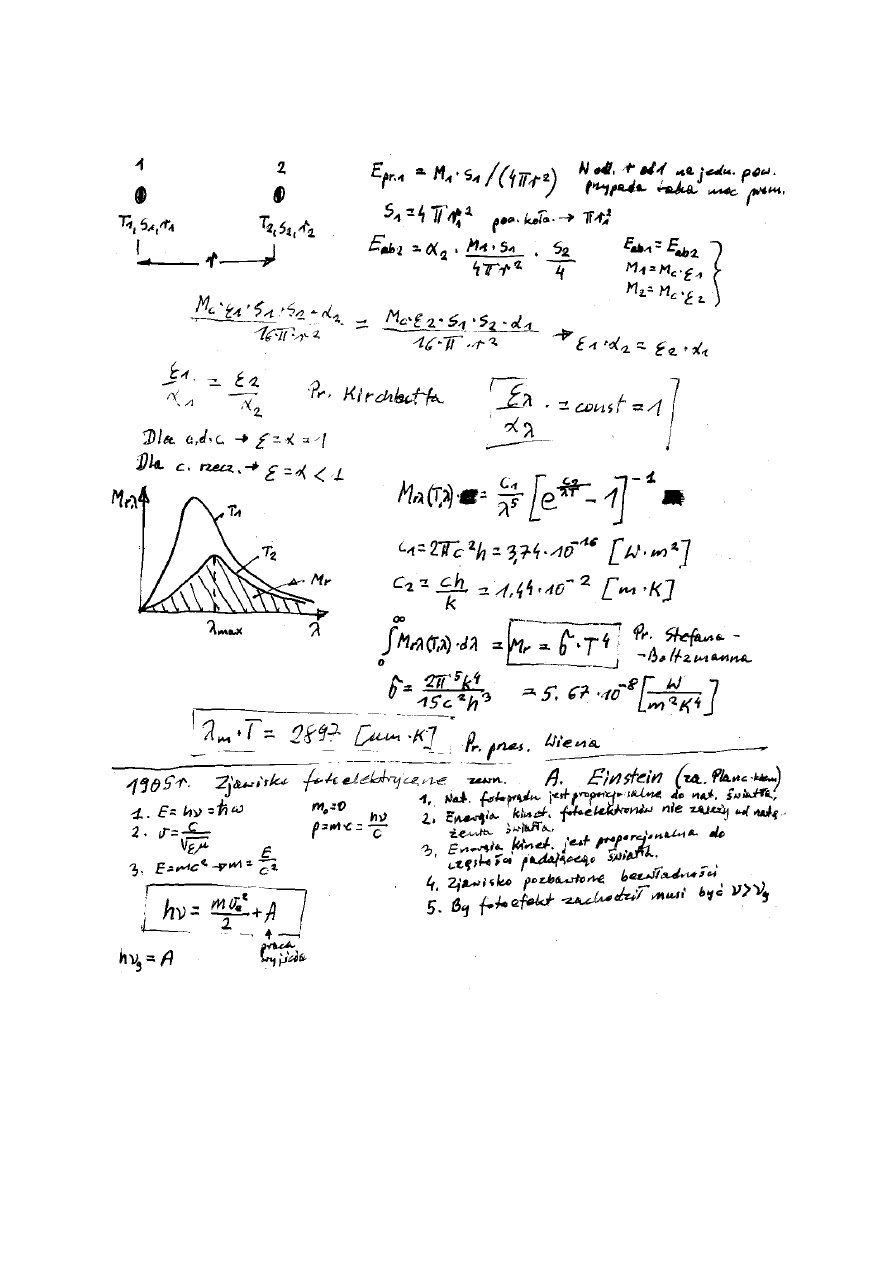 1 2
T₁, S₁, r₁ T₂, S₂, r₂
r
E_pr.1 = M₁·S₁/(4πr²) W odl. r od 1 na jedn. pow.
przypada taka moc prom.
S₁ = 4πr₁² pow. koła → πr₁²
E_ab2 = α₂ · M₁·S₁/4πr² · S₂/4
E_ab1 = E_ab2
M₁ = M_c·ε₁
M₂ = M_c·ε₂
M_c·ε₁·S₁·S₂·α₂/16·π·r² = M_c·ε₂·S₁·S₂·α₁/16·π·r² → ε₁·α₂ = ε₂·α₁
ε₁/α₁ = ε₂/α₂ Pr. Kirchhoffa ελ/αλ · = const = 1
Dla c.d.c. → ε = α = 1
Dla c. rzecz. → ε = α < 1
M_rλ T₁ T₂ M_r
λmax λ
M_rλ(T,λ) = c₁/λ⁵ [e^(c₂/λT) − 1]⁻¹
c₁ = 2πc²h = 3,74·10⁻¹⁶ [W·m²]
c₂ = ch/k = 1,44·10⁻² [m·K]
∫₀^∞ M_rλ(T,λ)·dλ = M_r = σ·T⁴ Pr. Stefana-
-Boltzmanna
σ = 2π⁵k⁴/15c²h³ = 5.67·10⁻⁸ [W/m²K⁴]
λ_m·T = 2897 [μm·K] Pr. przes. Wiena
1905r. Zjawisko fotoelektryczne zewn. A. Einstein (za. Planckiem)
1. E = hν = ħω m₀=0
2. v = c/√εμ p=m·c = hν/c
3. E=mc² → m = E/c²
hν = mv_e²/2 + A
praca
wyjścia
hν_g = A
1. Nat. fotoprądu jest proporcjonalne do nat. światła.
2. Energia kinet. fotoelektronów nie zależy od natę-
żenia światła.
3. Energia kinet. jest proporcjonalna do
częstości padającego światła.
4. Zjawisko pozbawione bezwładności
5. By fotoefekt zachodził musi być ν>ν_g